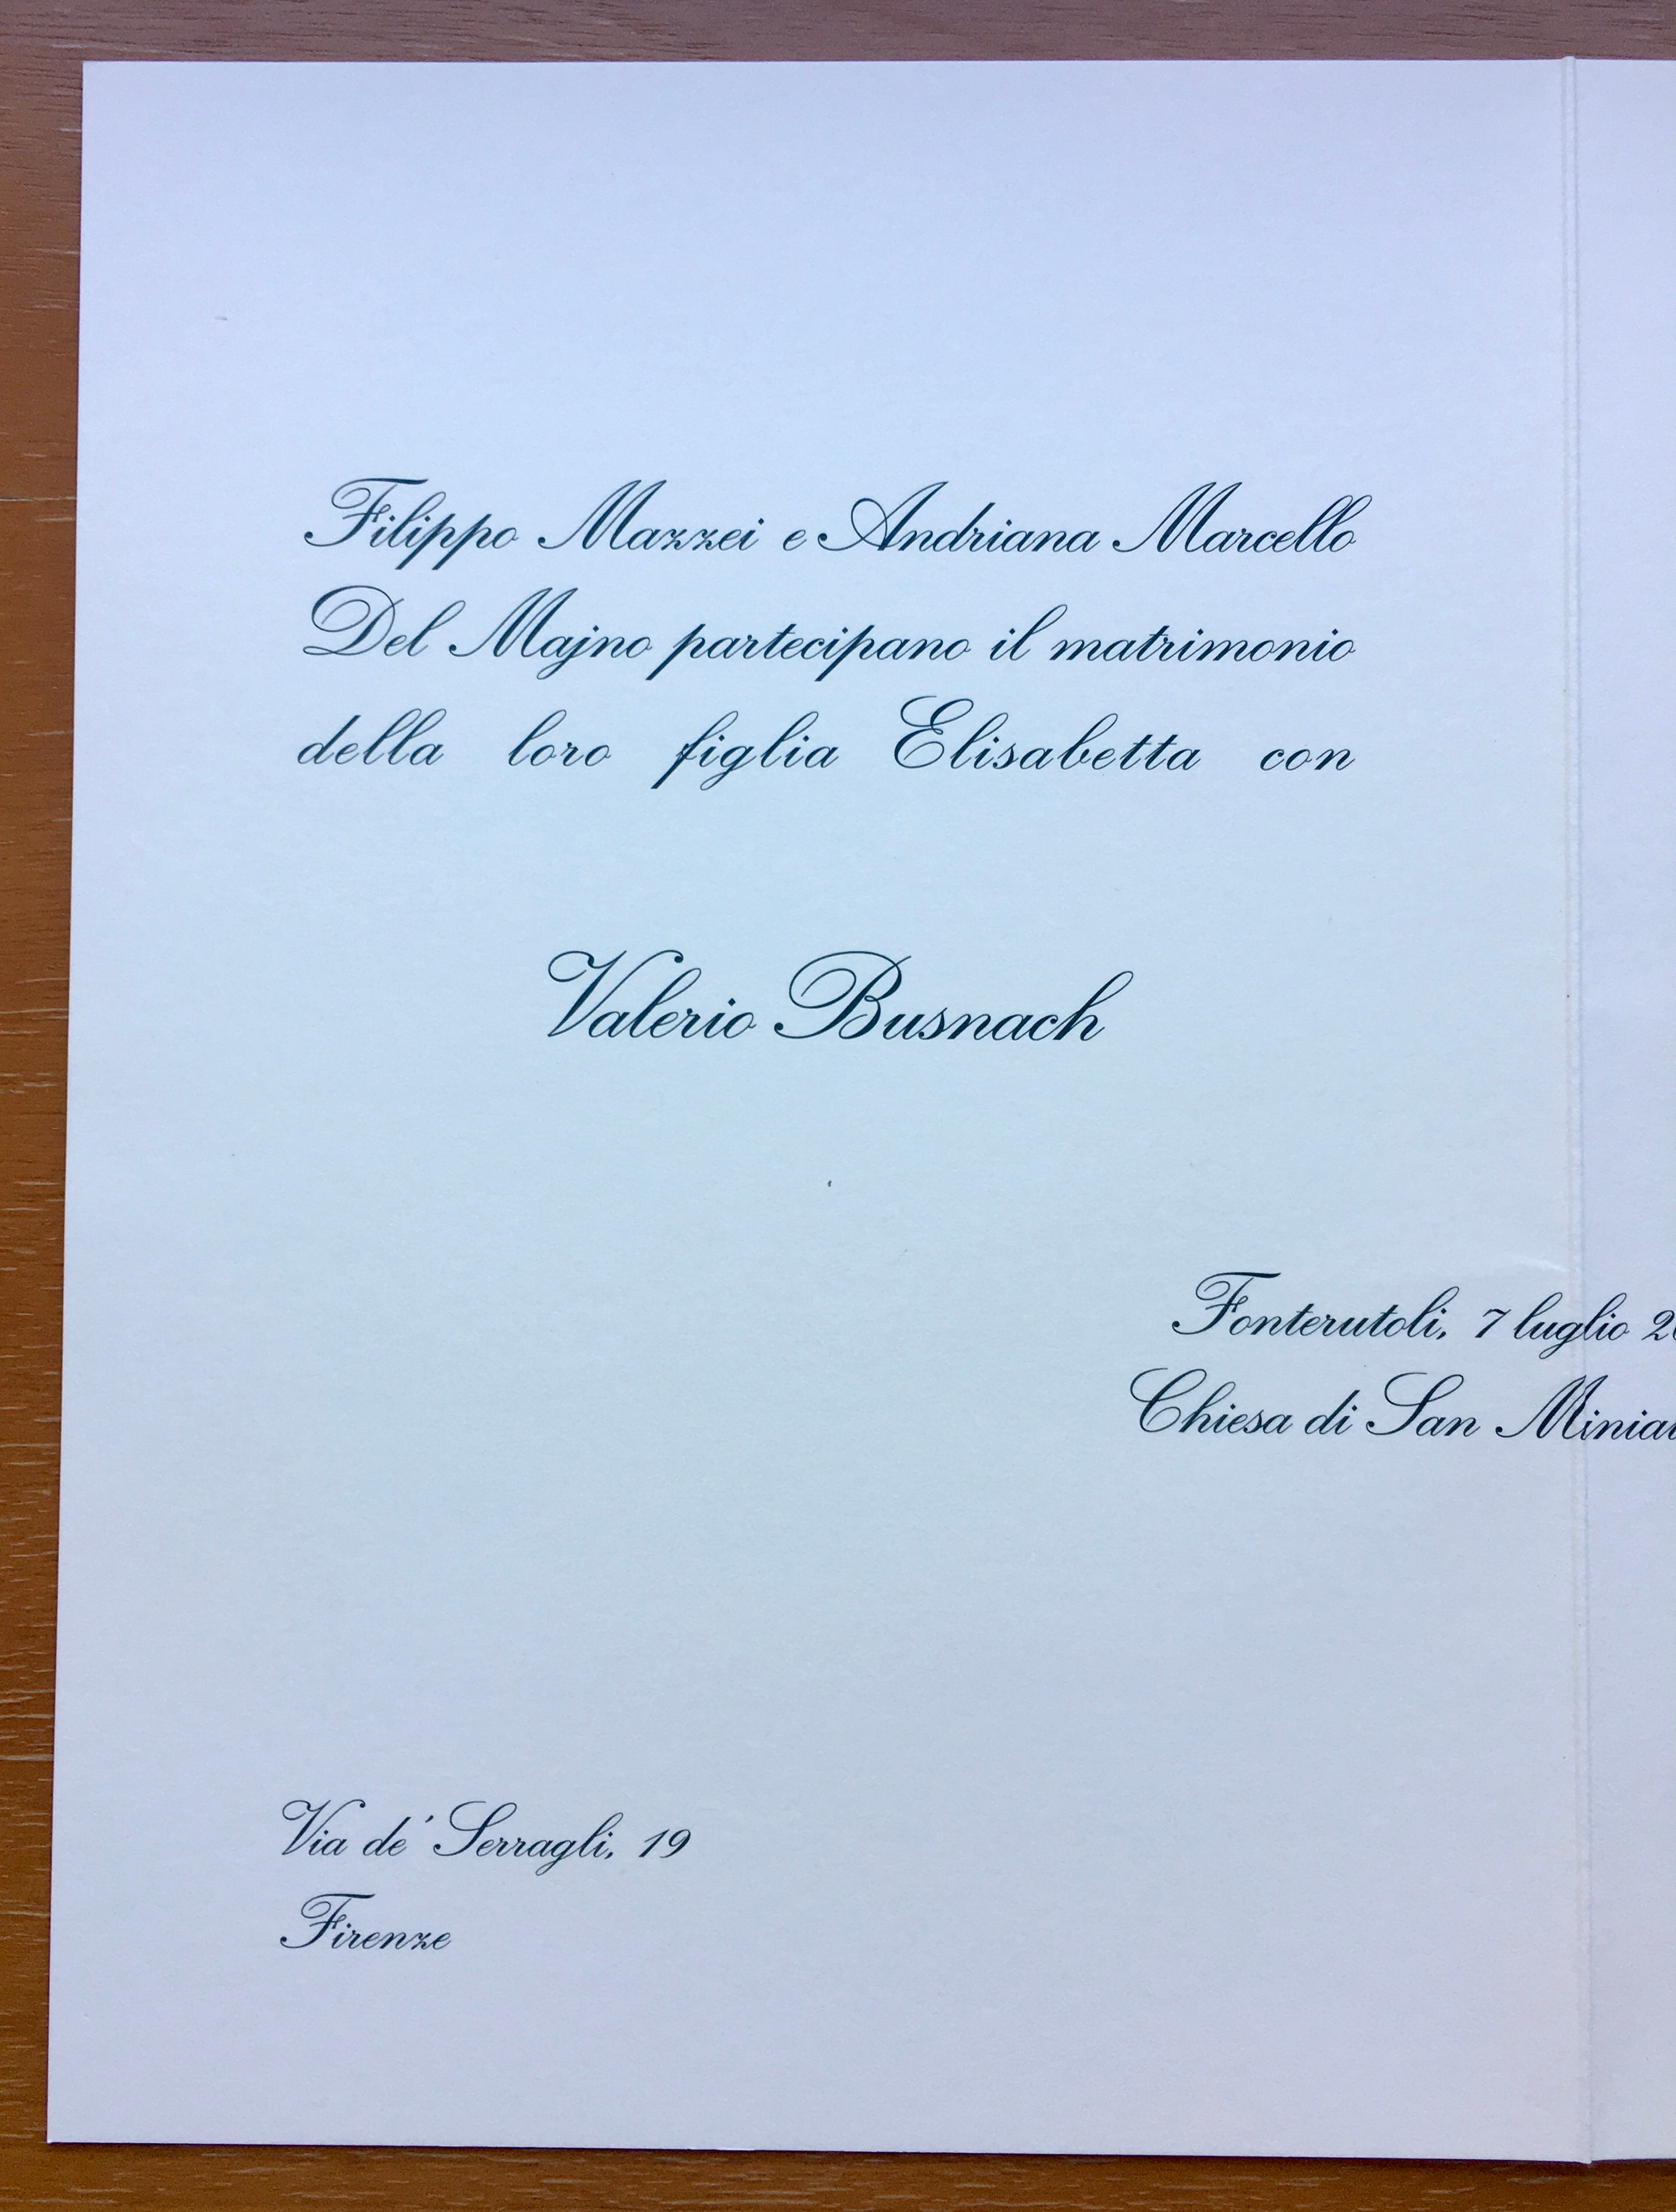 Filippo Mazzei e Andriana Marcello
Del Majno partecipano il matrimonio
della loro figlia Elisabetta con
Valerio Busnach
Fonterutoli, 7 luglio
Chiesa di San
Via de' Serragli, 19
Firenze